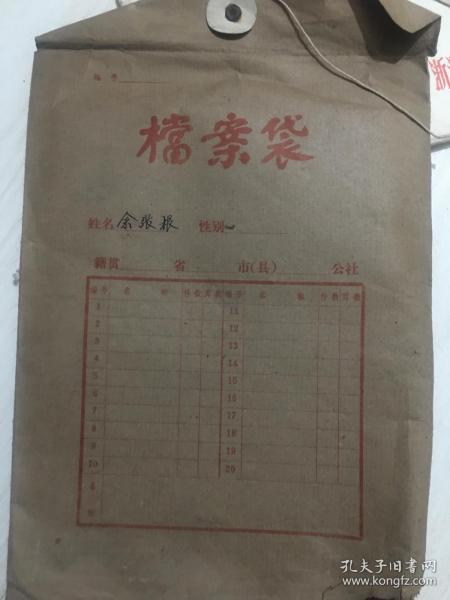 浙
编号
檔案袋
姓名 余张根 性别
籍贯 省 市(县) 公社
编号 名称 份数 页数 编号 名称 份数 页数
1 11
2 12
3 13
4 14
5 15
6 16
7 17
8 18
9 19
10 20
备
孔夫子旧书网
www.kongfz.com